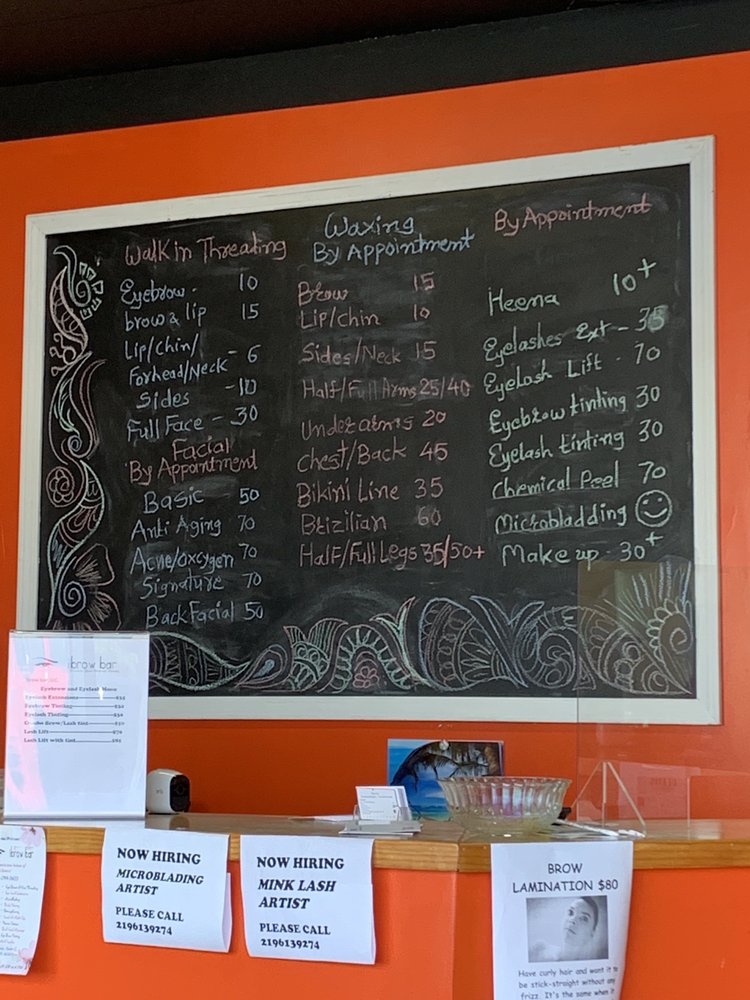 Walk in Threating
Eyebrow - 10
brow & lip 15
Lip/chin/
Forhead/Neck - 6
Sides - 10
Full Face - 30
Facial
By Appointment
Basic - 50
Anti Aging 70
Acne/oxcygen 70
Signature 70
Back Facial 50
Waxing
By Appointment
Brow 15
Lip/chin 10
Sides/Neck 15
Half/Full Arms 25/40
Underarms 20
Chest/Back 45
Bikini Line 35
Brizilian 60
Half/Full Legs 35/50+
By Appointment
Heena 10+
Eyelashes Ext - 35
Eyelash Lift - 70
Eyebrow tinting 30
Eyelash tinting 30
Chemical Peel 70
Microbladding
Make up - 30+
brow bar
Eyebrow and Eyelash Menu
Eyelash Extensions
Eyebrow Tinting
Eyelash Tinting
Combo Brow/Lash tint
Lash Lift
Lash Lift with tint
NOW HIRING
MICROBLADING
ARTIST
PLEASE CALL
2196139274
NOW HIRING
MINK LASH
ARTIST
PLEASE CALL
2196139274
BROW
LAMINATION $80
Have curly hair and want it to
be stick-straight without any
frizz. It's the same when it